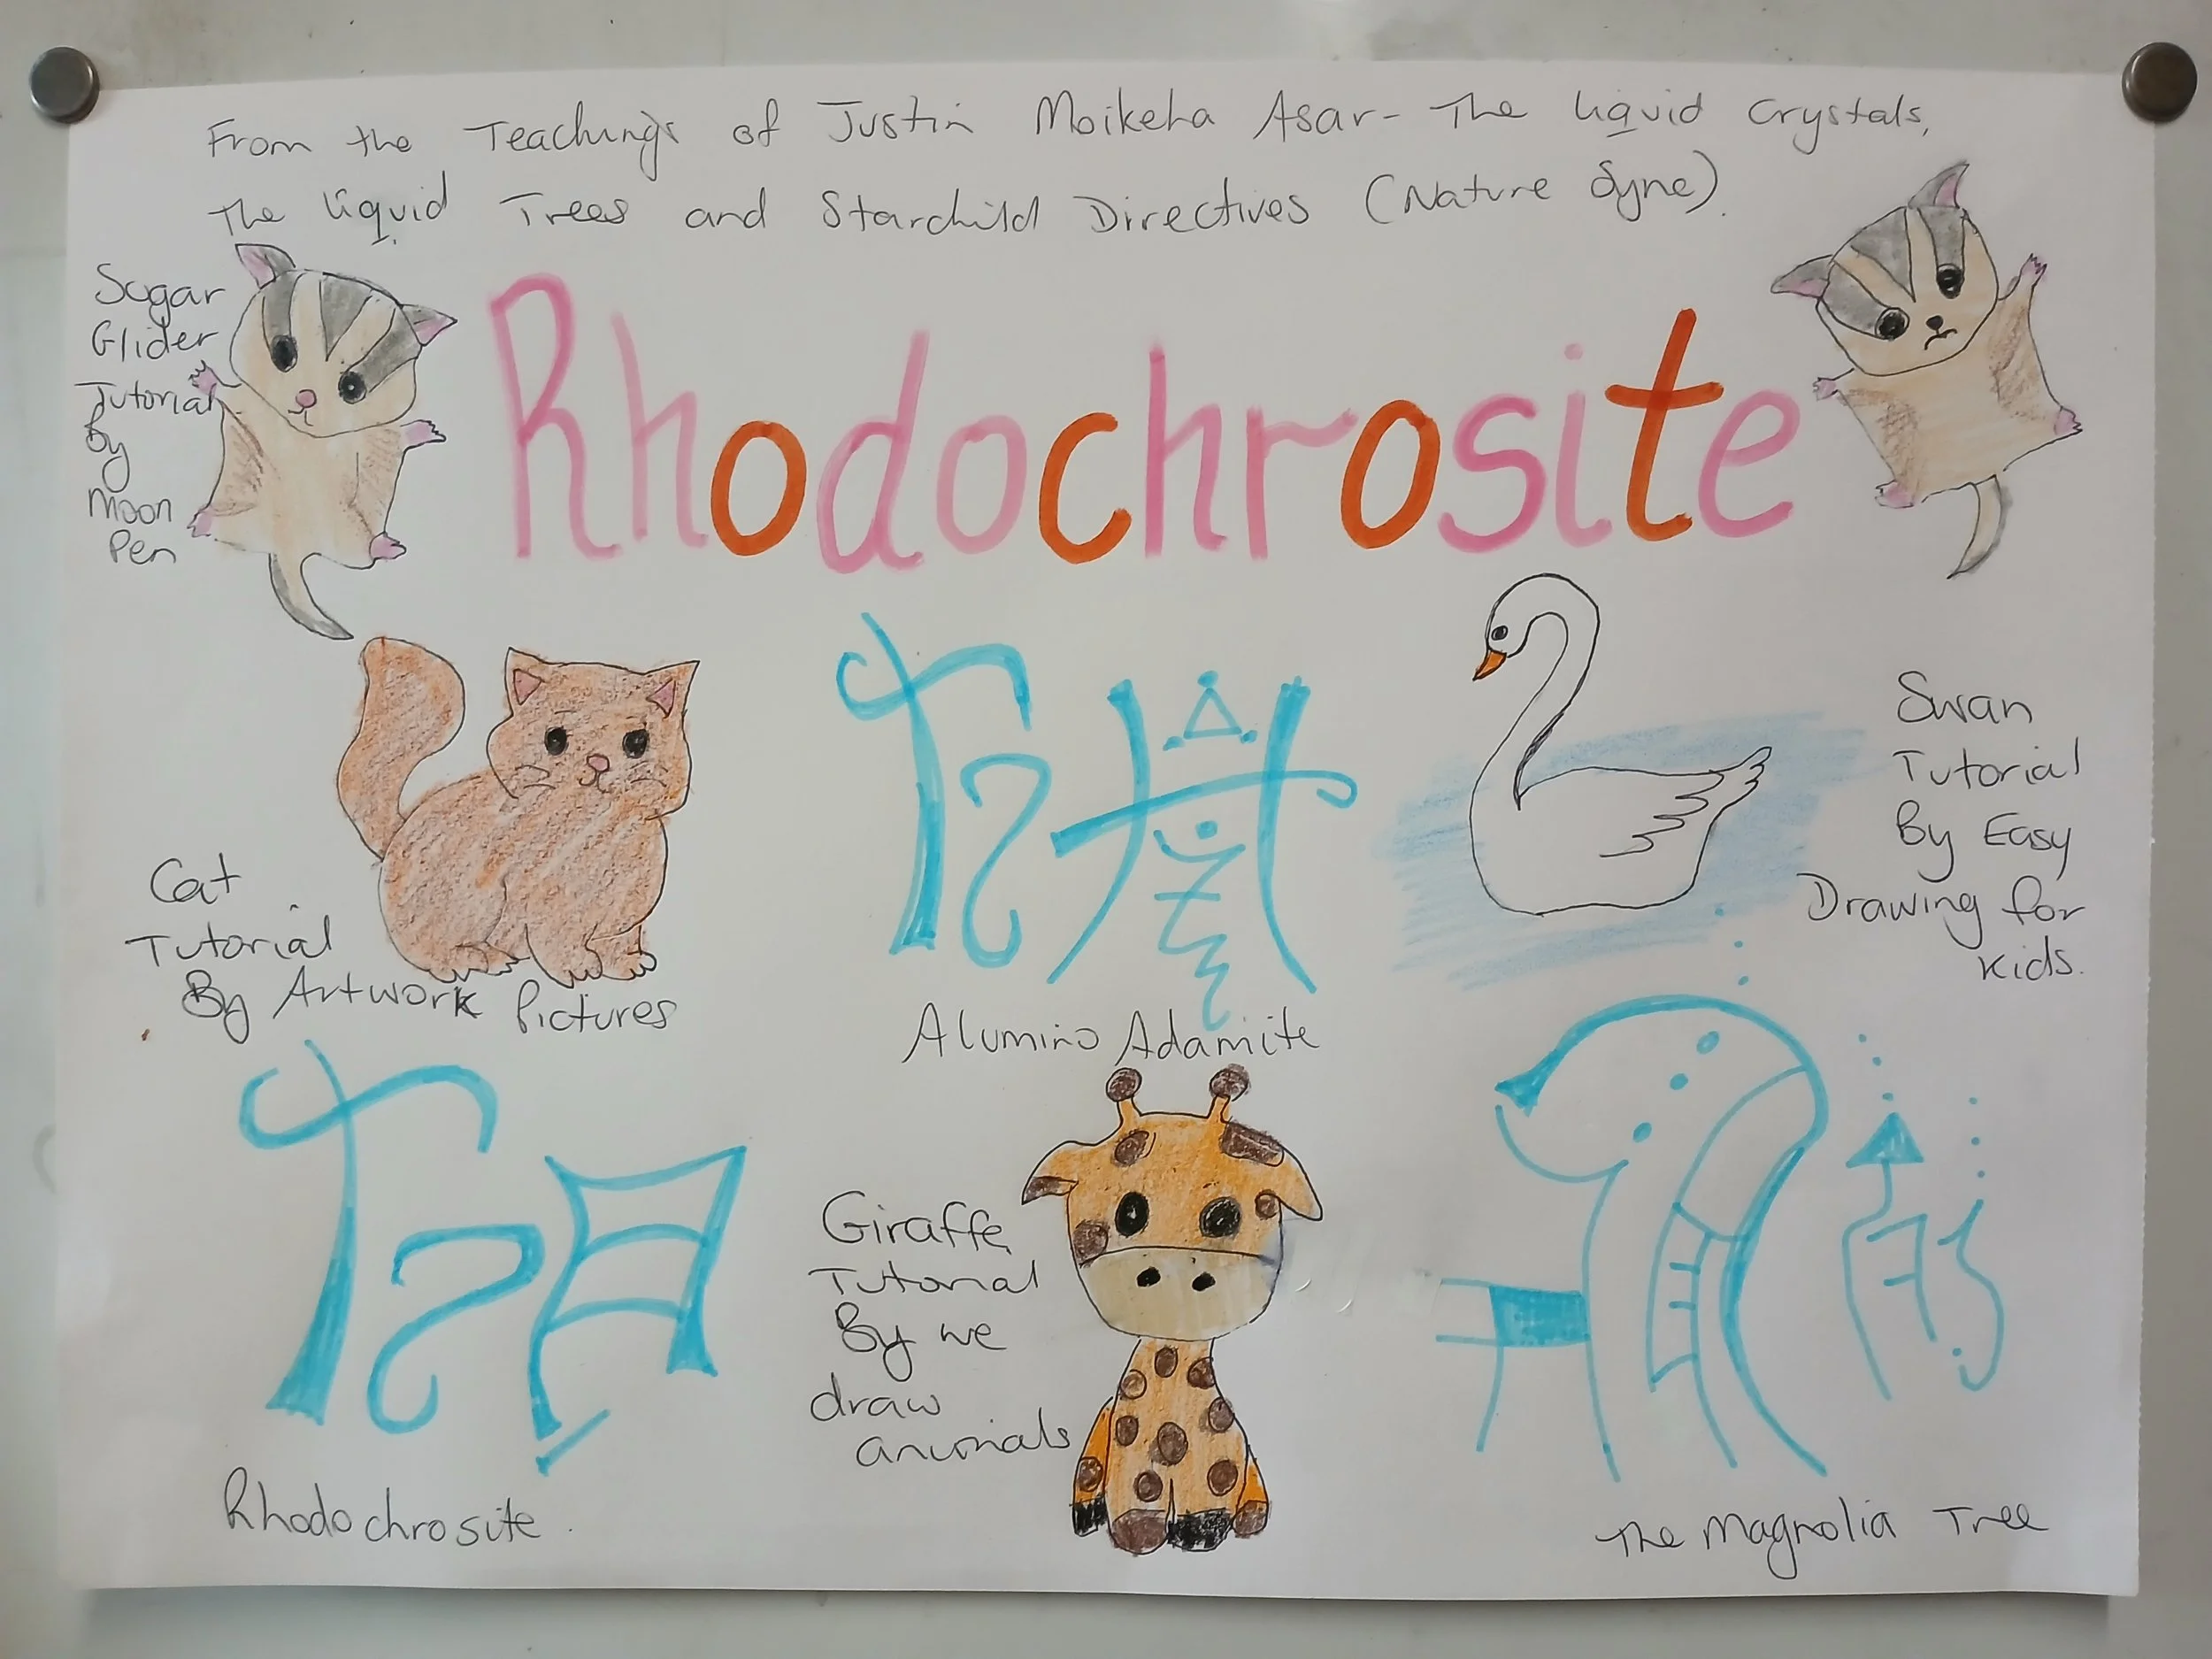 From the Teachings of Justin Moikeha Asar- The liquid Crystals,
The liquid Trees and Starchild Directives (Nature Syne).
Sugar
Glider
Tutorial
By
Moon
Pen
Rhodochrosite
Cat
Tutorial
By Artwork Pictures
Alumino Adamite
Swan
Tutorial
By Easy
Drawing for
kids.
Rhodochrosite.
Giraffe
Tutorial
By we
draw
animals
The Magnolia Tree